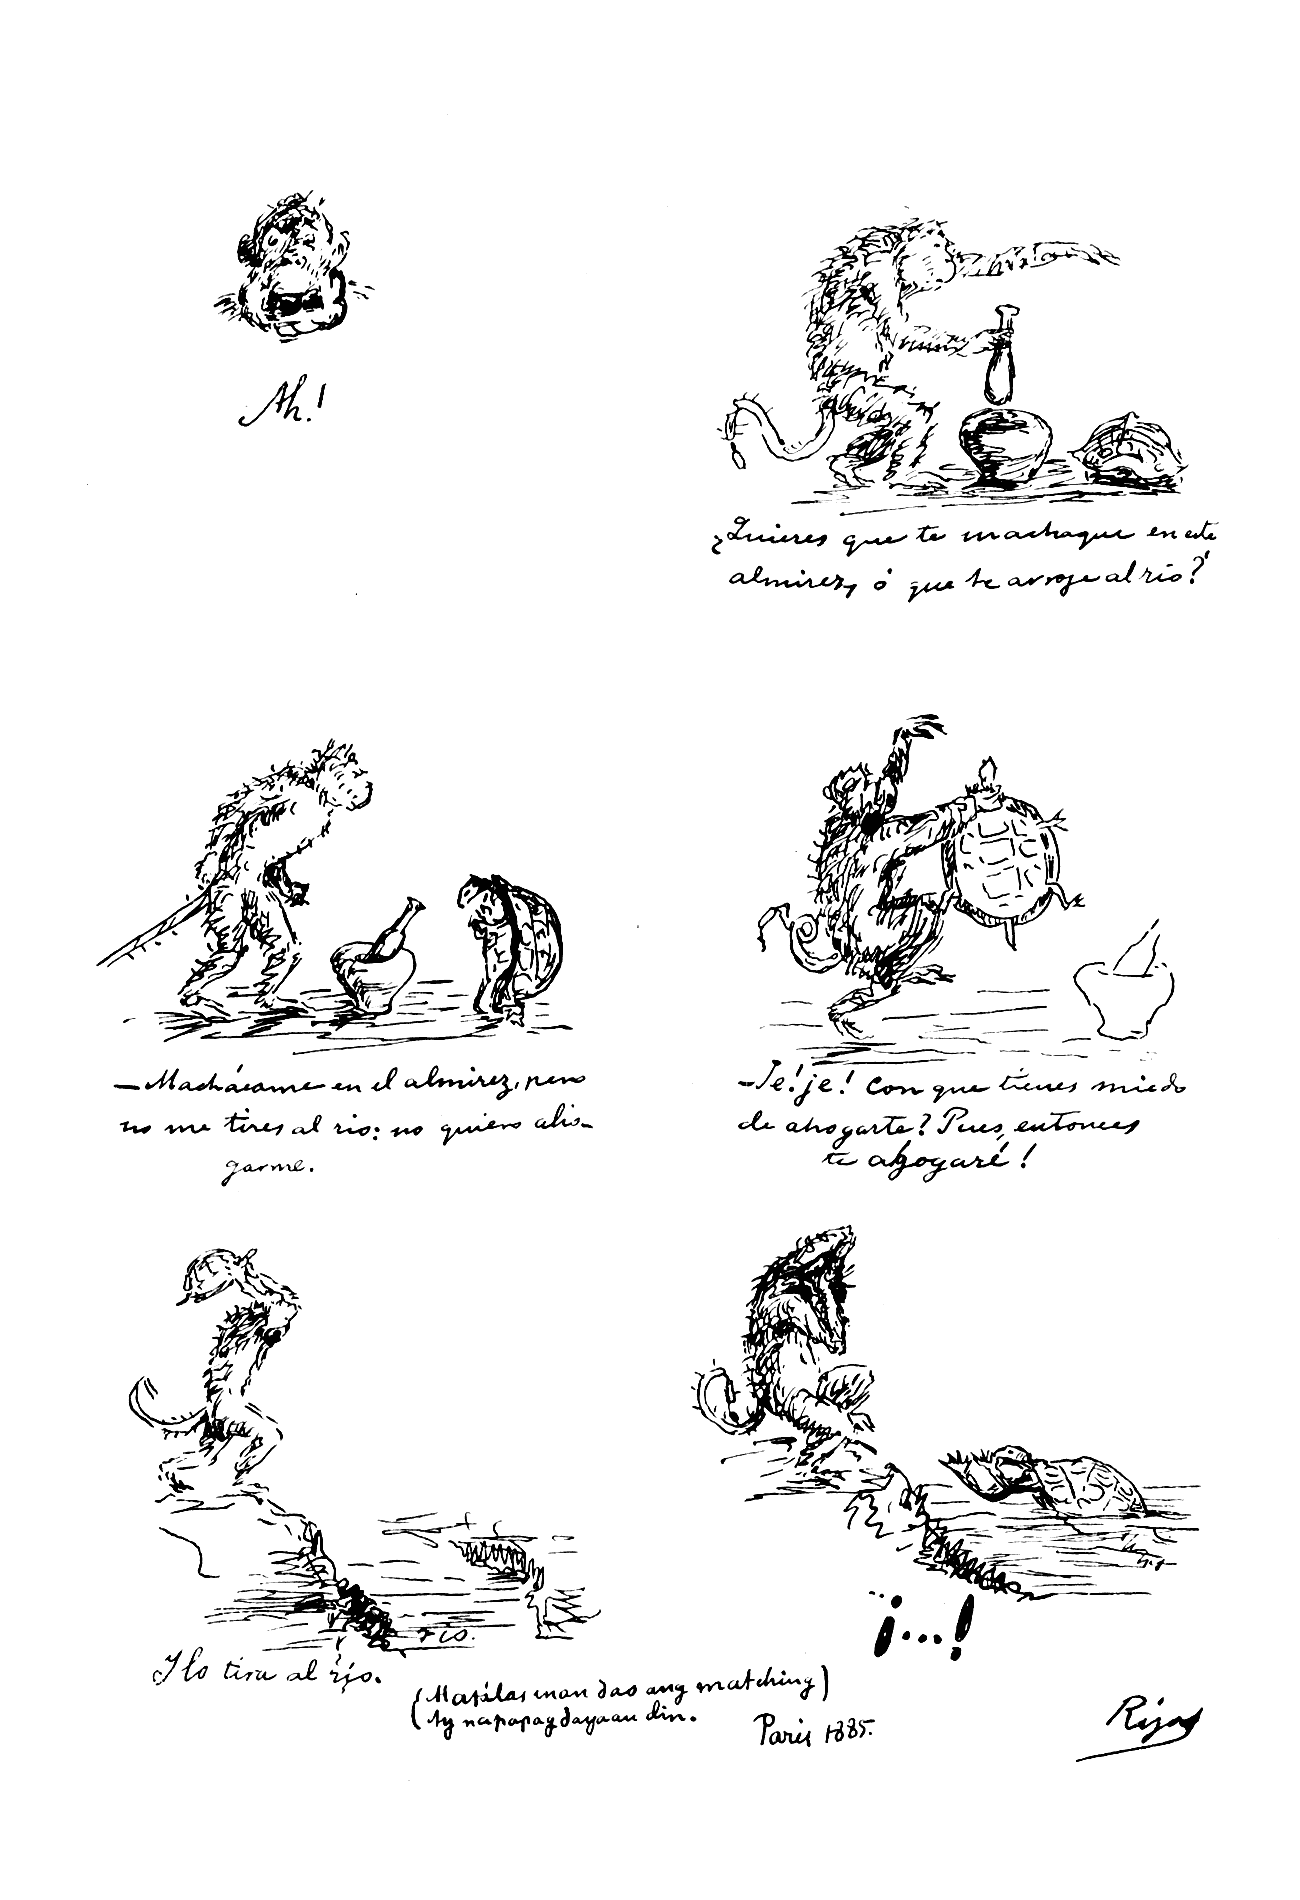 Ah!
¿Quieres que te machaque en este
almirez, ó que te arroje al rio?
—Machácame en el almirez, pero
no me tires al rio: no quiero aho-
garme.
—Je! je! Con que tienes miedo
de ahogarte? Pues, entonces
te ahogaré!
rio.
Y lo tira al rio.
¡...!
(Matálas man dao ang matching)
(Ay napapagdayaan din.
Paris 1885.
Rizal